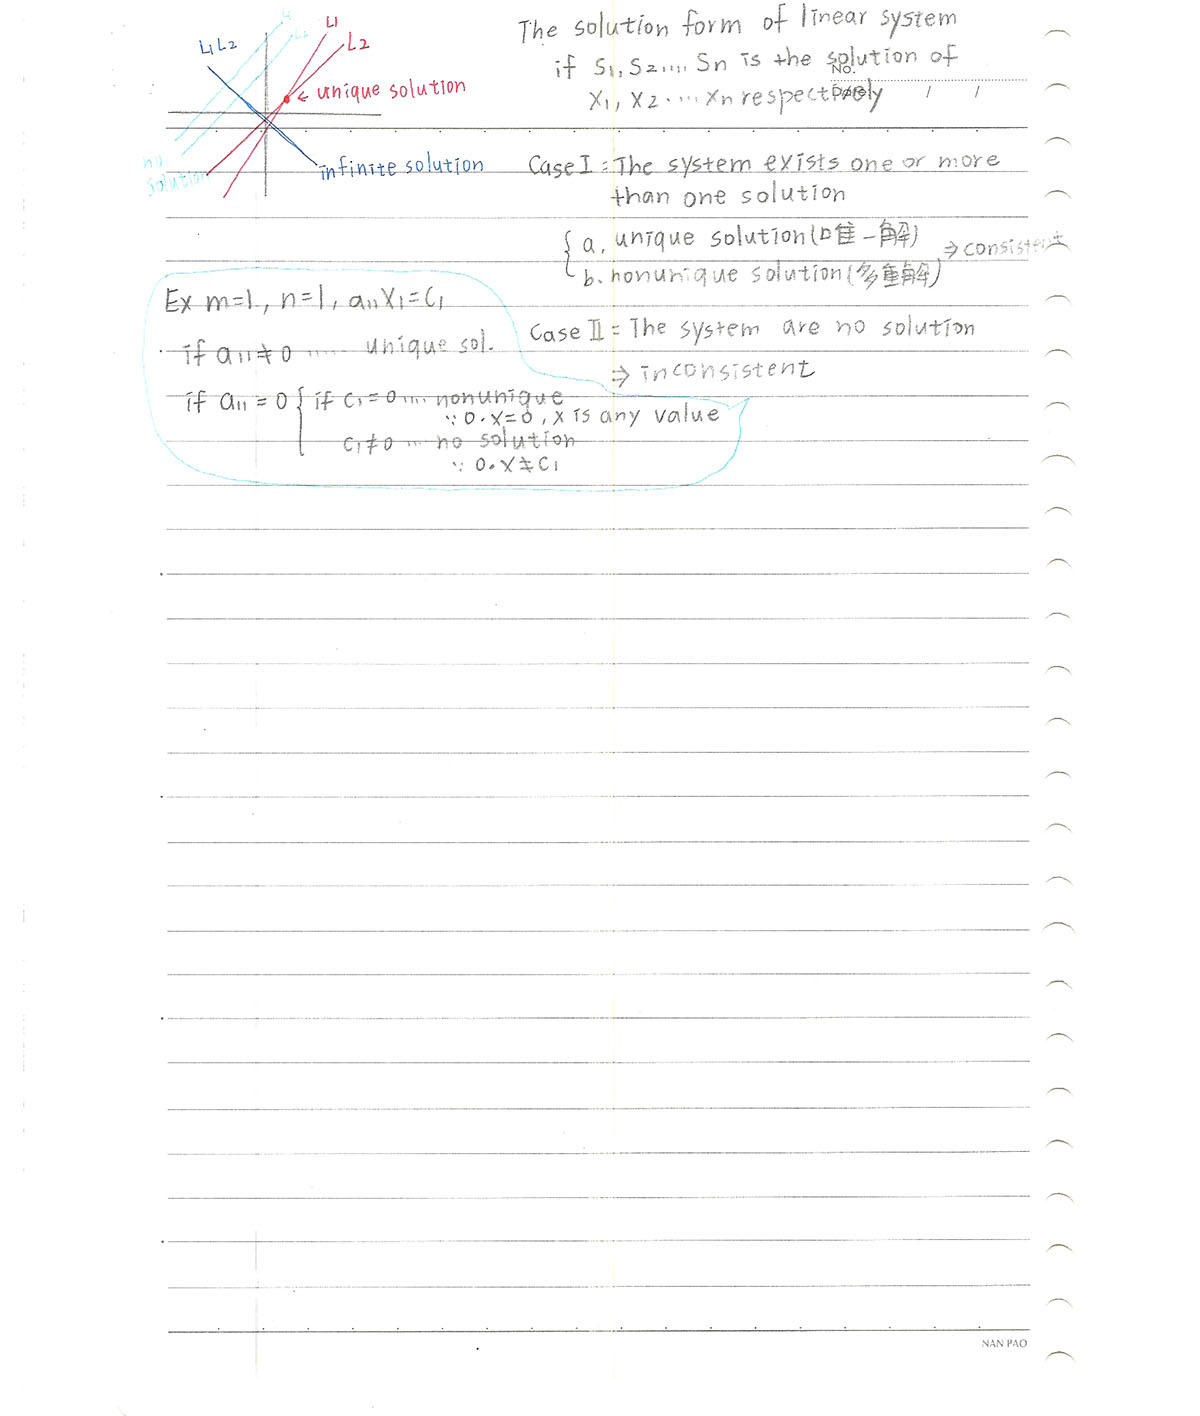 L1
L2
L1
L2
L1 L2
← unique solution
no
solution
infinite solution
The solution form of linear system
if S1, S2..... Sn is the solution of
X1, X2 ..... Xn respectively
No.
Date / /
Case I = The system exists one or more
than one solution
{ a. unique solution (唯一解)
b. nonunique solution (多重解) ⇒ consistent
Case II = The system are no solution
⇒ inconsistent
Ex m=1, n=1, a11X1=C1
if a11≠0 ...... unique sol.
if a11=0 { if C1=0 .... nonunique
∵ 0·X=0, X is any value
C1≠0 ... no solution
∵ 0·X≠C1
NAN PAO